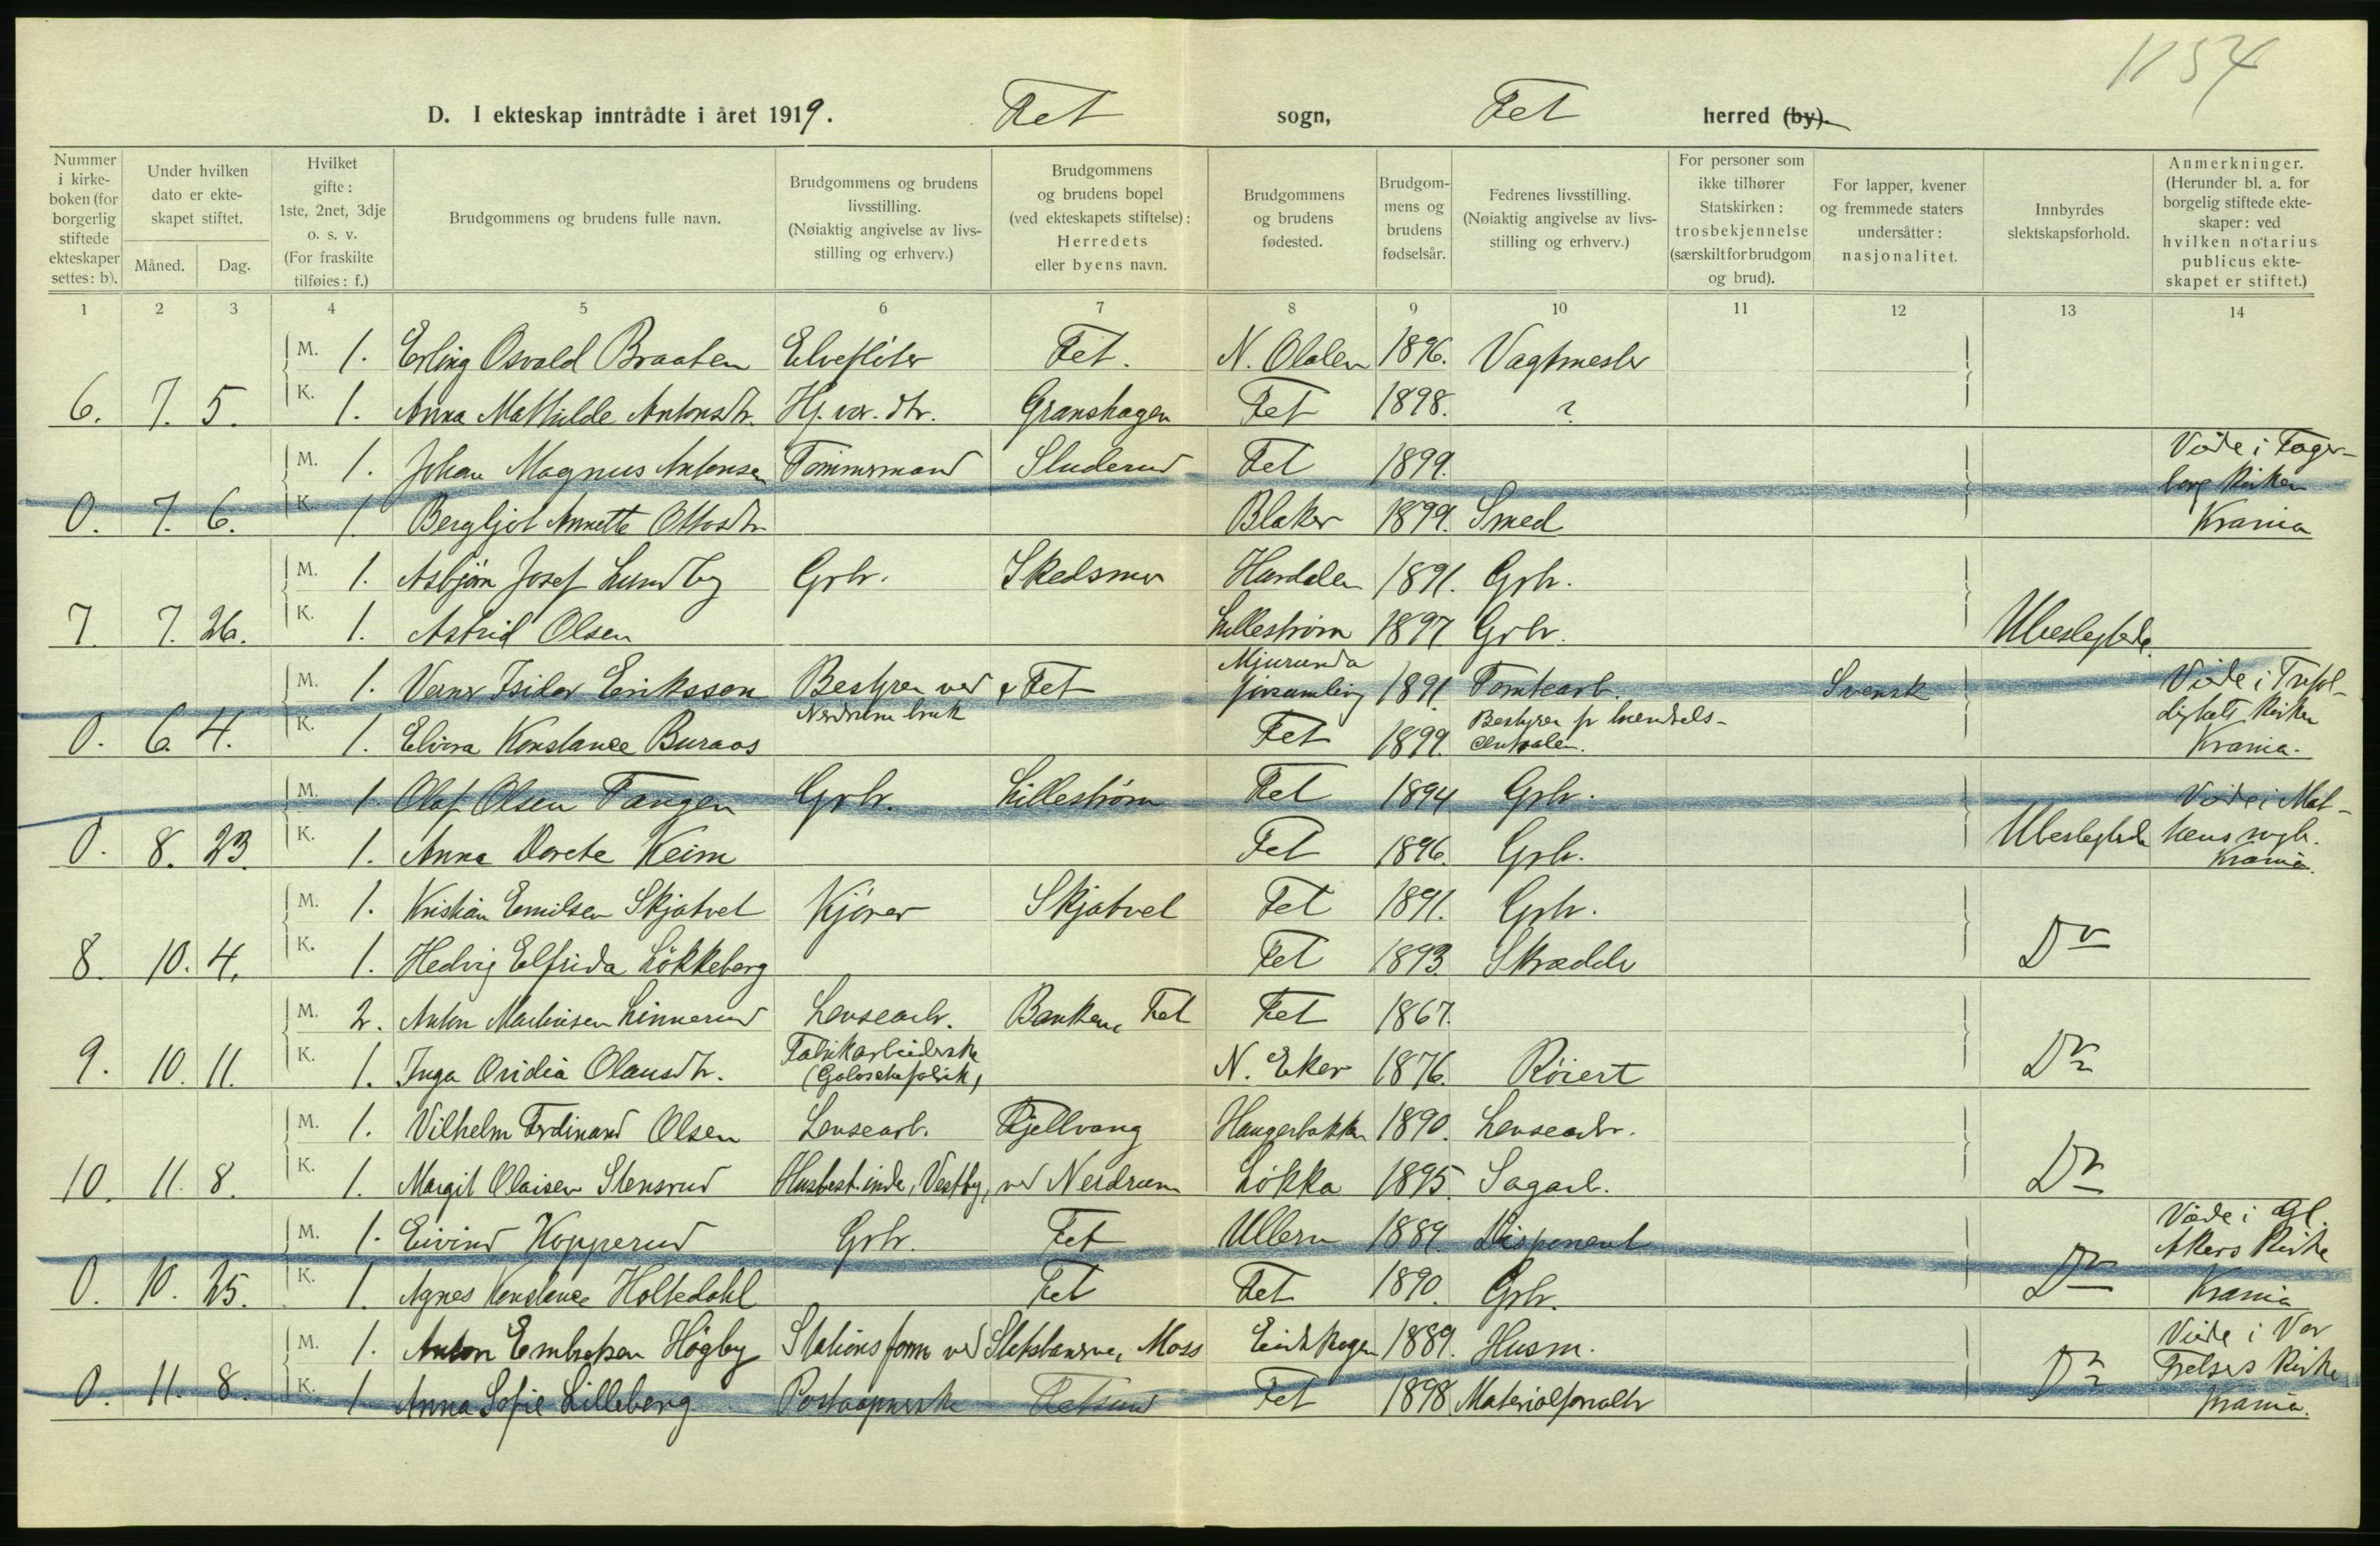 1154
D. I ekteskap inntrådte i året 1919. Fet sogn, Fet herred (by).
Nummer i kirkeboken (for borgerlig stiftede ekteskaper settes: b).
Under hvilken dato er ekteskapet stiftet.
Måned. Dag.
Hvilket gifte: 1ste, 2net, 3dje o. s. v. (For fraskilte tilføies: f.)
Brudgommens og brudens fulle navn.
Brudgommens og brudens livsstilling. (Nøiaktig angivelse av livsstilling og erhverv.)
Brudgommens og brudens bopel (ved ekteskapets stiftelse): Herredets eller byens navn.
Brudgommens og brudens fødested.
Brudgommens og brudens fødselsår.
Fedrenes livsstilling. (Nøiaktig angivelse av livsstilling og erhverv.)
For personer som ikke tilhører Statskirken: trosbekjennelse (særskilt for brudgom og brud).
For lapper, kvener og fremmede staters undersåtter: nasjonalitet.
Innbyrdes slektskapsforhold.
Anmerkninger. (Herunder bl. a. for borgelig stiftede ekteskaper: ved hvilken notarius publicus ekteskapet er stiftet.)
1 2 3 4 5 6 7 8 9 10 11 12 13 14
M. 1. Erling Osvald Braaten Elvefløter Fet. N. Odalen 1896. Vagtmester
6. 7. 5. K. 1. Anna Mathilde Antonsdtr. Hj.vær. dtr. Granshagen Fet 1898. ?
M. 1. Johan Magnus Antonsen Tømmermand Sluderud Fet 1899. Viede i Fager-
borg Kirken
0. 7. 6. K. 1. Bergljot Annette Ottosdtr. Blaker 1899. Smed Krania
M. 1. Asbjørn Josef Lundby Grbr. Skedsmo Hurdalen 1891. Grbr.
7 7. 26. K. 1. Astrid Olsen Lillestrøm 1897 Grbr. Ubeslegtede.
M. 1. Verner Isidor Eriksson Bestyrer ved Nerdrum bruk Fet Mjurunda forsamling 1891. Tomtearb. Svensk Viede i Trefol-
dighets Kirken
0. 6. 4. K. 1. Elvira Konstance Buraas Fet 1899. Bestyrer fr brændsels-
centralen. Krania.
M. 1. Olaf Olsen Tangen Grbr. Lillestrøm Fet 1894 Grbr. Viede i Mat-
0. 8. 23. K. 1. Anna Dorete Keim Fet 1896. Grbr. Ubeslegtede heus sogn.
Krania.
M. 1. Kristian Emilsen Skjatvet Kjører Skjatvet Fet 1891. Grbr.
8. 10. 4. K. 1. Hedvig Elfrida Løkkeberg Fet 1893. Skrædder Do
M. 2. Anton Martinsen Linnerud Lensearb. Banken, Fet Fet 1867.
9. 10. 11. K. 1. Inga Ovidia Olausdtr. Fabrikarbeiderske (Galoschefabrik) N. Eker 1876. Røiert Do
M. 1. Vilhelm Ferdinand Olsen Lensearb. Fjellvang Haugerbakken 1890. Lensearbr.
10. 11. 8. K. 1. Margit Olaisen Stensrud Husbest.inde, Vestby, ved Nerdrum Løkka 1895. Sagarb. Do
M. 1. Eivind Kopperud Grbr. Fet Ullern 1889. Disponent Viede i Gl.
Akers Kirke
0. 10. 25. K. 1. Agnes Konstance Holtedahl Fet Fet 1890. Grbr. Do Krania
M. 1. Anton Embretsen Høgby Stationsform. ved Statsbanerne, Moss Eidskogen 1889. Husm. Viede i Vor
Frelsers Kirke
0. 11. 8. K. 1 Anna Sofie Lilleberg Postaapnerske Fetsund Fet 1898 Materialforvalter Do Krania.